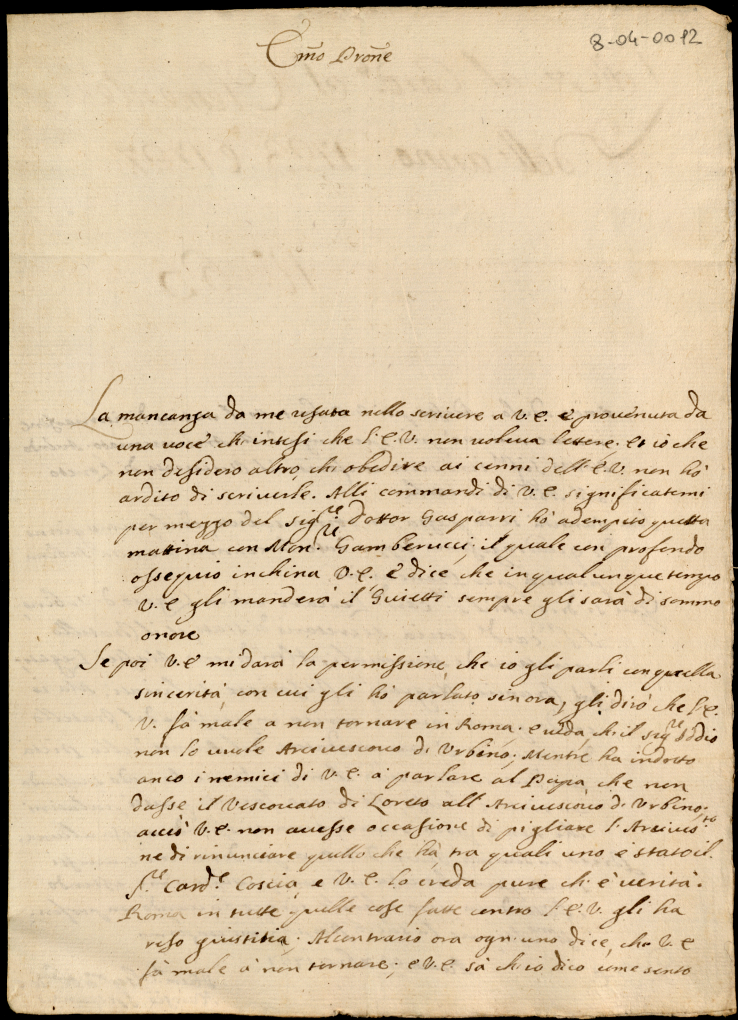 8-04-0012
Emo Prone
La mancanza da me usata nello scrivere a V. E. è provenuta da
una voce ch' intesi che l' E. V. non voleva lettere. et io che
non desidero altro, ch' obedire ai cenni dell' E. V. non hò
ardito di scriverle. Alli commandi di V. E. significatemi
per mezzo del Sig.re Dottor Gasparri hò adempito questa
mattina con Mon.re Gamberucci; il quale con profondo
ossequio inchina V. E. e dice, che in qualunque tempo
V. E. gli manderà il Guietti sempre gli sarà di sommo
onore
Se poi V. E. mi darà la permissione, che io gli parli con quella
sincerità, con cui gli hò parlato sinora, gli dirò che l' E.
V. fà male a non tornare in Roma, e creda, ch' il Sig.re Iddio
non lo vuole Arcivescovo di Urbino; Mentre ha indotto
anco i nemici di V. E. à parlare al Papa, che non
dasse il Vescovato di Loreto all' Arcivescovo di Urbino,
acciò V. E. non avesse occasione di pigliare l' Arcives.to
ne di rinunciare quello che hà, tra quali uno è stato il
S.re Card.e Coscia, e V. E. lo creda pure ch' è verità.
Roma in tutte quelle cose fatte contro l' E. V. gli ha
reso giustitia; Al contrario ora ogn' uno dice, che V. E.
fà male à non tornare; e V. E. sà ch' io dico come sento